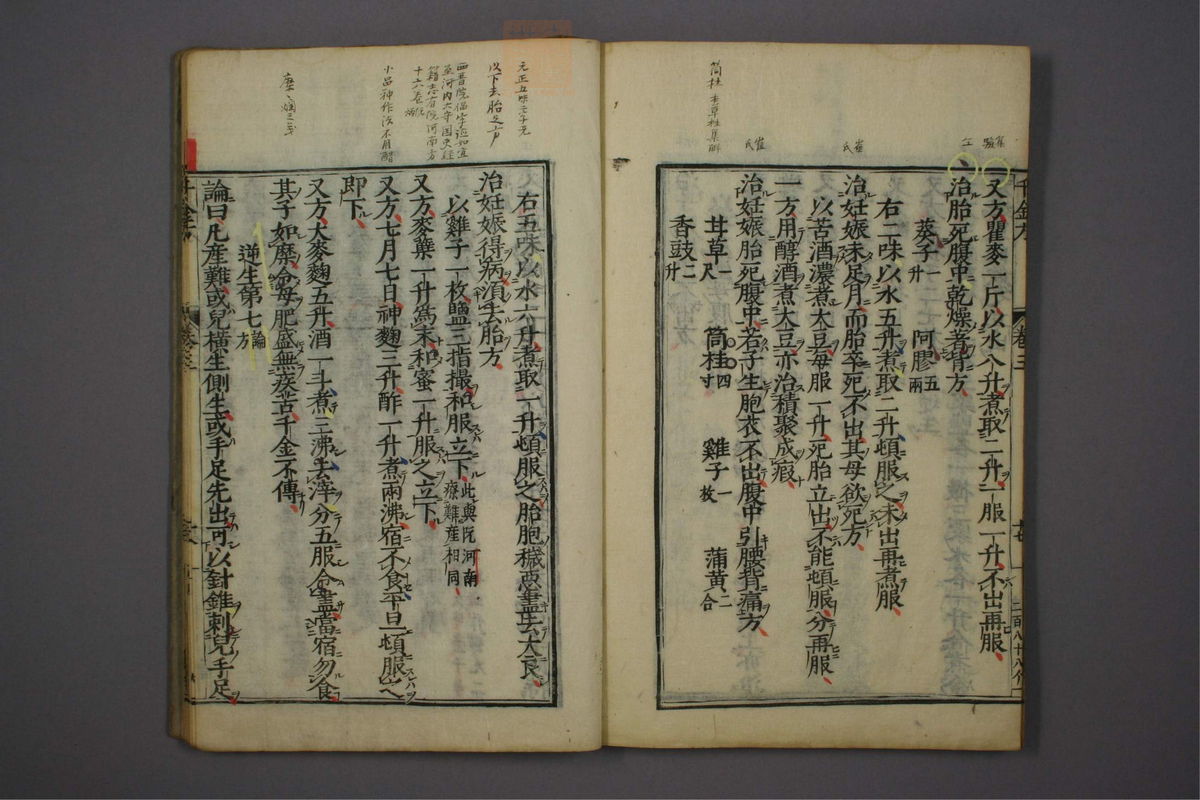 又方瞿麥一斤以水八升煮取二升一服一升不出再服
治胎死腹中乾燥著背方
葵子一升 阿膠五兩
右二味以水五升煮取二升頓服之未出再煮服
治妊娠未足月而胎卒死不出其母欲死方
以苦酒濃煮大豆每服一升死胎立出不能頓服分再服
一方用醇酒煮大豆亦治積聚成瘕
治妊娠胎死腹中若子生胞衣不出腹中引腰背痛方
甘草一尺 筒桂四寸 雞子一枚 蒲黃二合
香豉二升
右五味以水六升煮取一升頓服之胎胞穢惡盡去大良
治妊娠得病須去胎方
以雞子一枚鹽三指撮和服立下此與阮河南療難産相同
又方麥蘗一升爲末和蜜一升服之立下
又方七月七日神麴三升酢一升煮兩沸宿不食平旦頓服
即下
又方大麥麴五升酒一斗煮三沸去滓分五服令盡當宿勿食
其子如糜令母肥盛無疾苦千金不傳
逆生第七論方
論曰凡産難或兒橫生側生或手足先出可以針錐刺兒手足
千金方
卷三
集驗
崔氏
崔氏
筒桂 本草桂集解
以下去胎之方